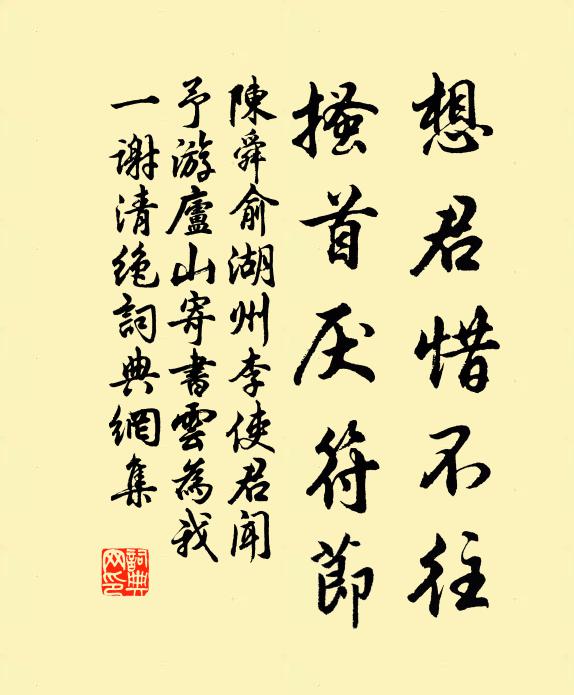 想君惜不往
搔首厌符節
陳舜俞湖州李使君聞
予游廬山寄書雲為我
一謝清絶詞典網集
詞典網印